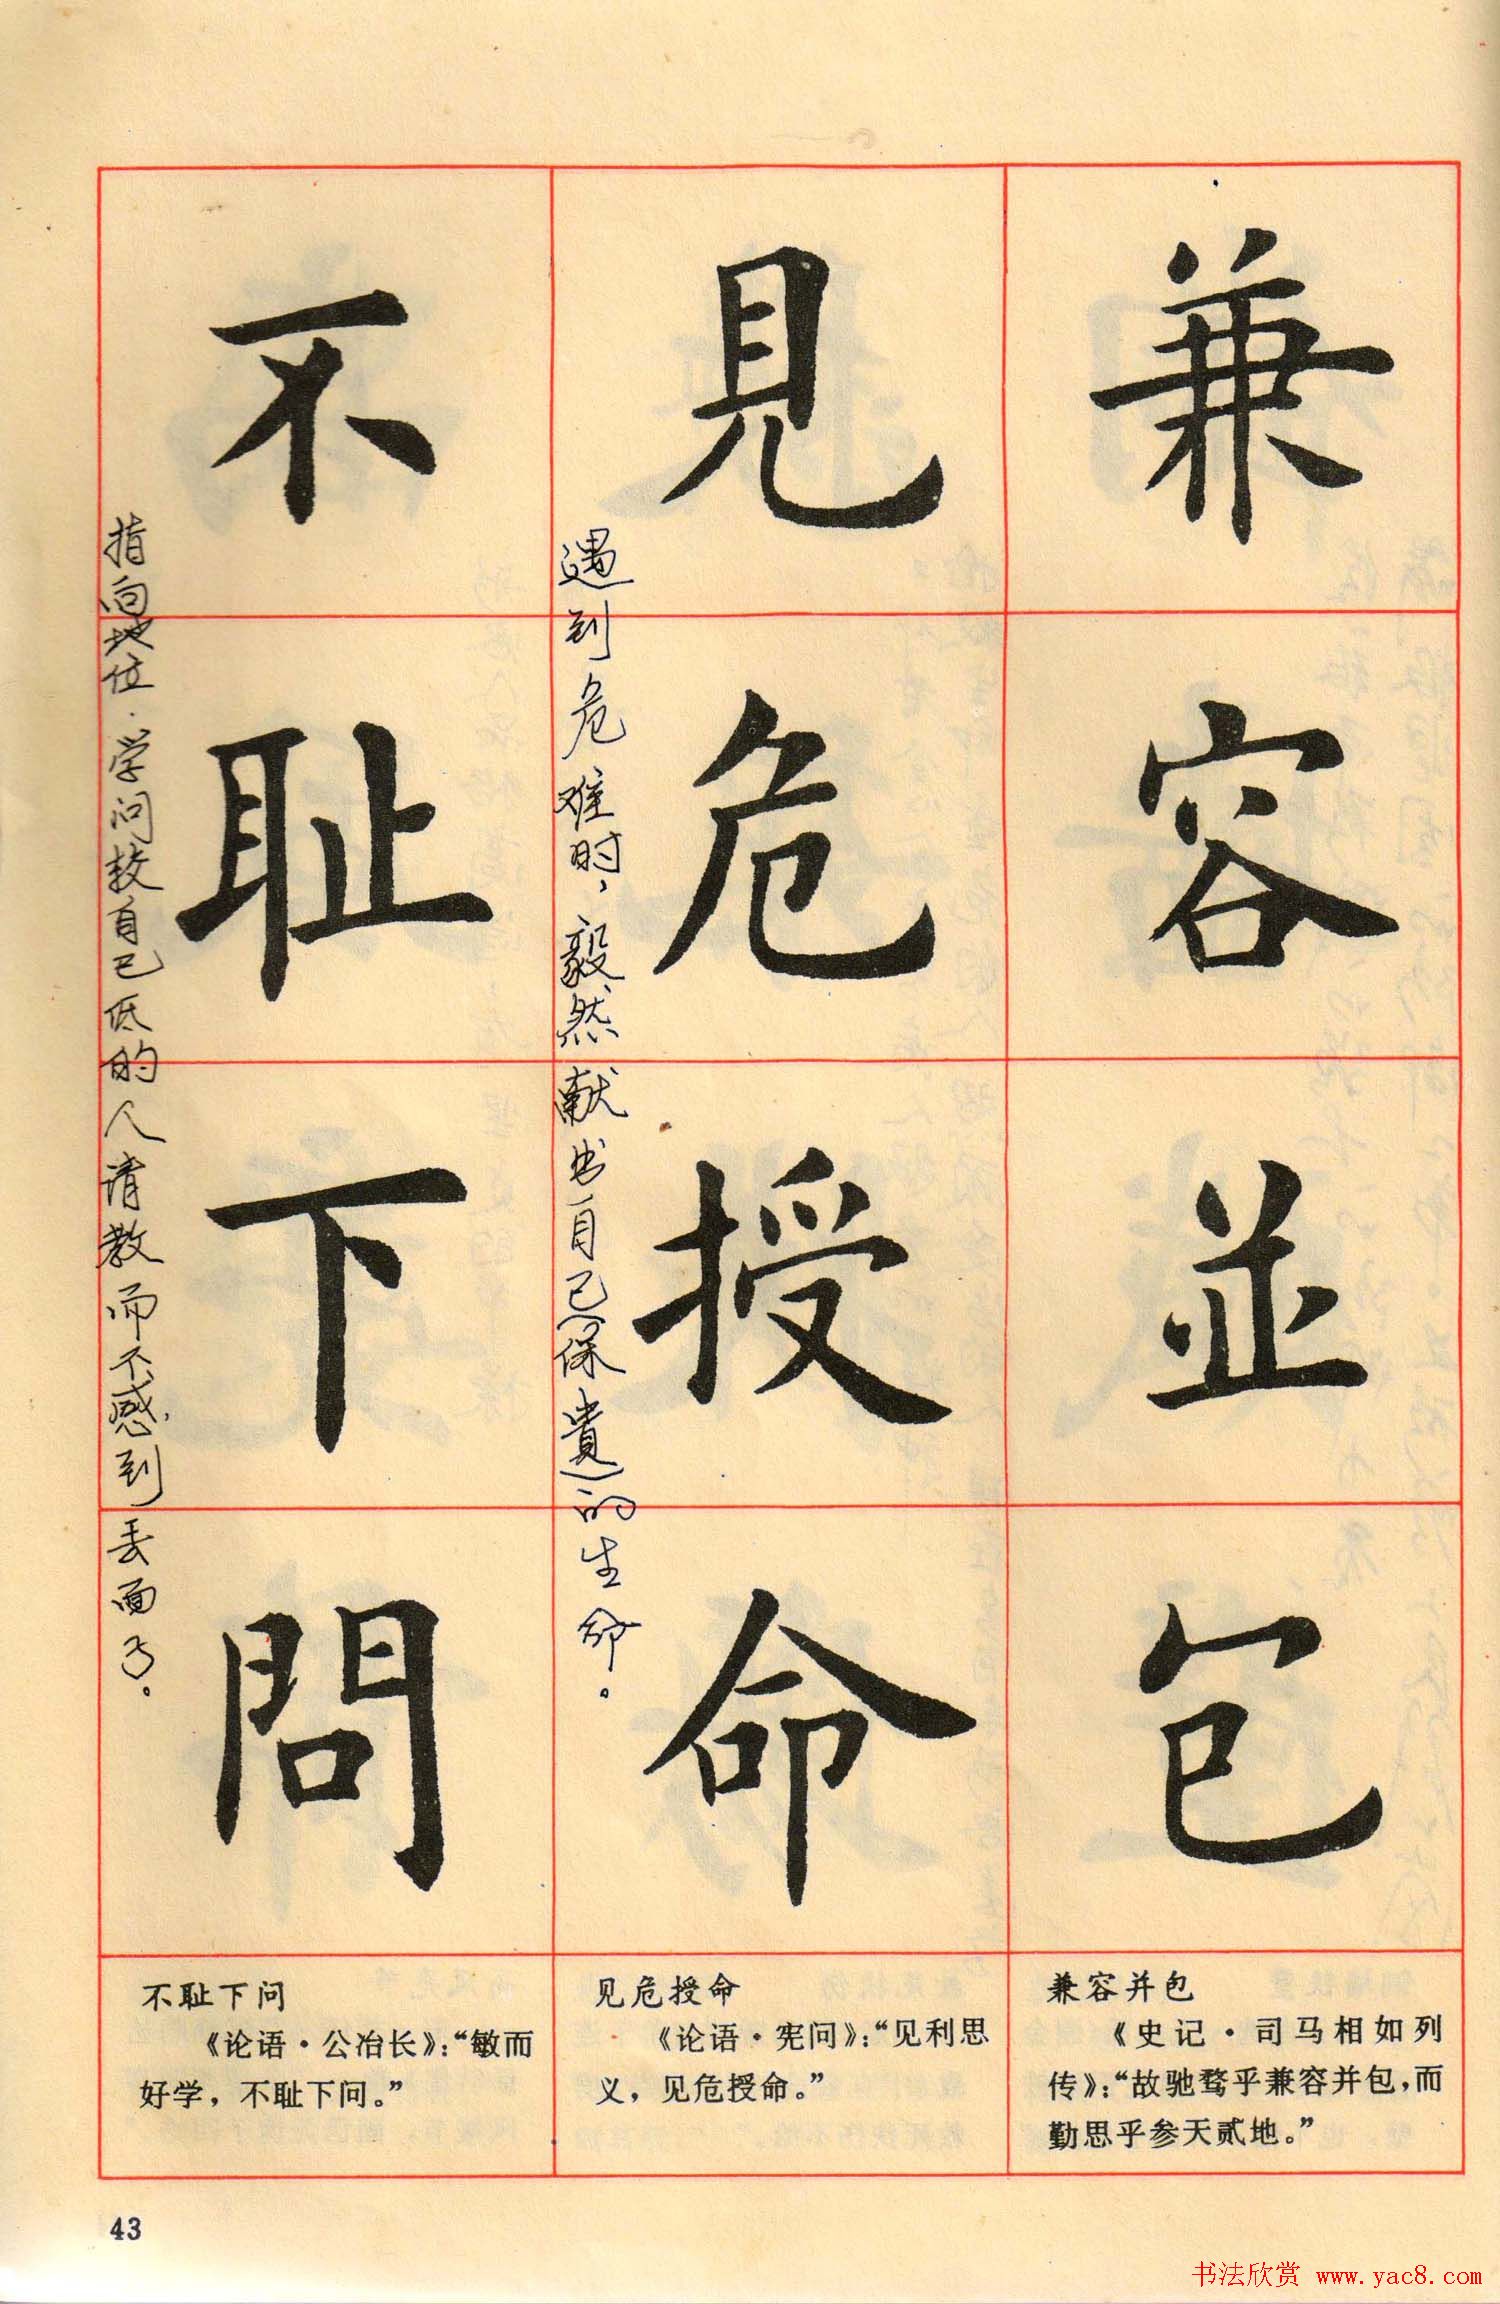 兼容並包
見危授命
遇到危难时，毅然献出自己保貴的生命。
不耻下問
指向地位·学问较自己低的人请教而不感到丢面子。
兼容并包
《史记·司马相如列
传》：“故驰骛乎兼容并包，而
勤思乎参天贰地。”
见危授命
《论语·宪问》：“见利思
义，见危授命。”
不耻下问
《论语·公冶长》：“敏而
好学，不耻下问。”
43
书法欣赏 www.yac8.com